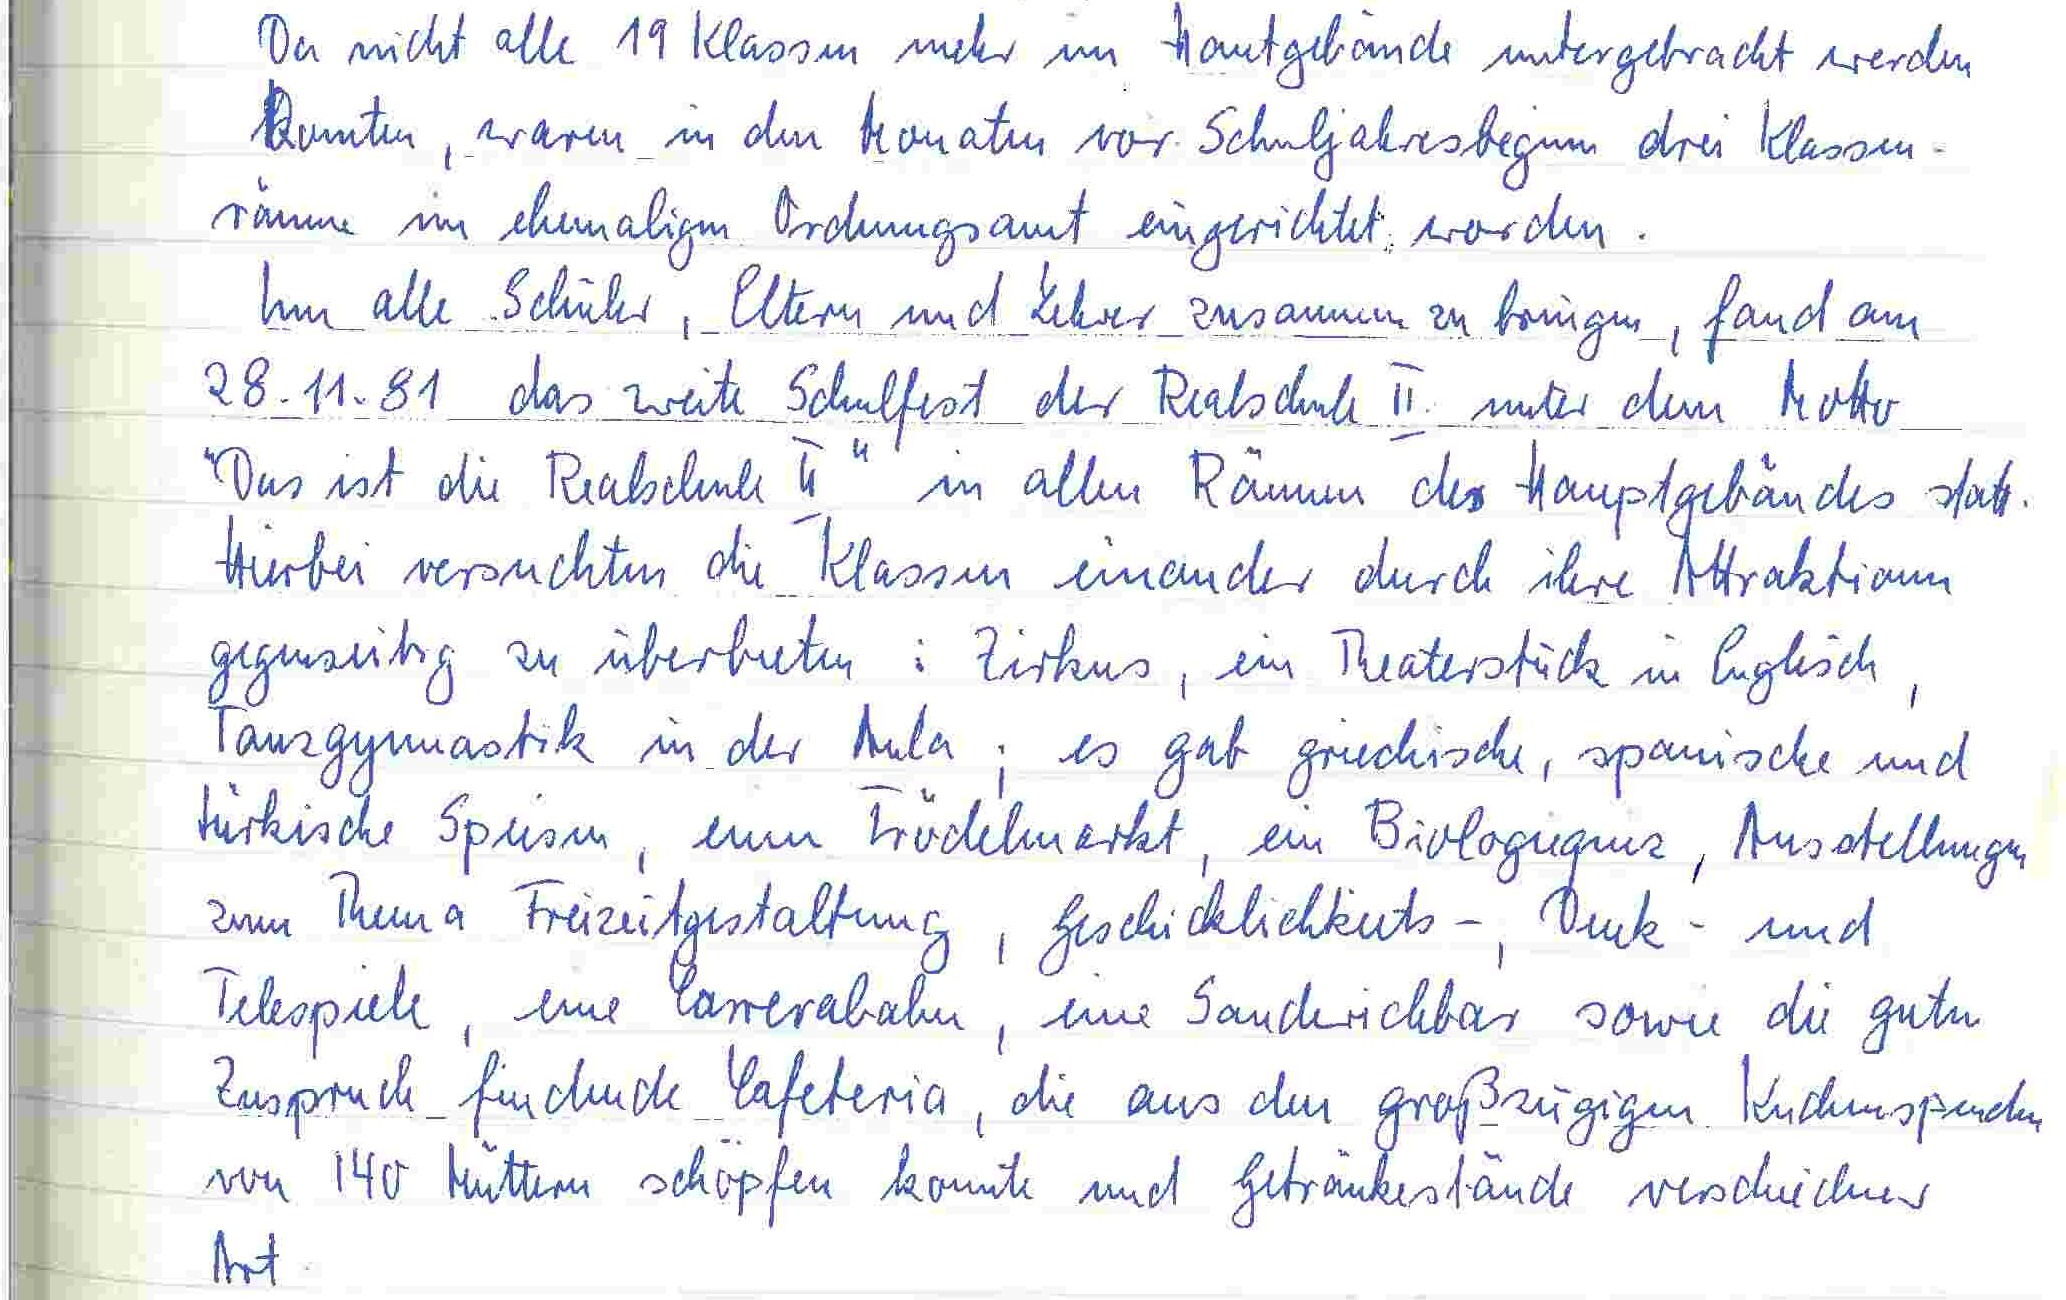 Da nicht alle 19 Klassen mehr im Hautgebäude untergebracht werden
konnten, waren in den Monaten vor Schuljahresbeginn drei Klassen-
räume im ehemaligen Ordnungsamt eingerichtet worden.
Um alle Schüler, Eltern und Lehrer zusammen zu bringen, fand am
28.11.81 das zweite Schulfest der Realschule II unter dem Motto
"Das ist die Realschule II" in allen Räumen des Hauptgebäudes statt.
Hierbei versuchten die Klassen einander durch ihre Attraktionen
gegenseitig zu überbieten : Zirkus, ein Theaterstück in Englisch,
Tanzgymnastik in der Aula ; es gab griechische, spanische und
türkische Speisen, einen Trödelmarkt, ein Biologiequiz, Ausstellungen
zum Thema Freizeitgestaltung, Geschicklichkeits-, Denk- und
Telespiele, eine Carrerabahn, eine Sandwichbar sowie die guten
Zuspruch findende Cafeteria, die aus den großzügigen Kuchenspenden
von 140 Müttern schöpfen konnte und Getränkestände verschiedener
Art.